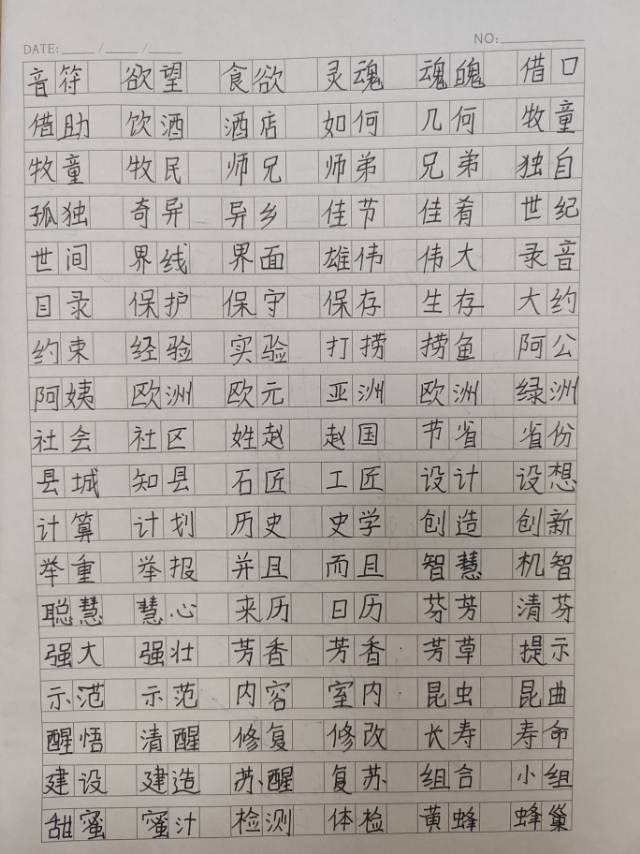 DATE: ____ / ____ / ____ NO: ________
音符 欲望 食欲 灵魂 魂魄 借口
借助 饮酒 酒店 如何 几何 牧童
牧童 牧民 师兄 师弟 兄弟 独自
孤独 奇异 异乡 佳节 佳肴 世纪
世间 界线 界面 雄伟 伟大 录音
目录 保护 保守 保存 生存 大约
约束 经验 实验 打捞 捞鱼 阿公
阿姨 欧洲 欧元 亚洲 欧洲 绿洲
社会 社区 姓赵 赵国 节省 省份
县城 知县 石匠 工匠 设计 设想
计算 计划 历史 史学 创造 创新
举重 举报 并且 而且 智慧 机智
聪慧 慧心 来历 日历 芬芳 清芬
强大 强壮 芳香 芳香 芳草 提示
示范 示范 内容 室内 昆虫 昆曲
醒悟 清醒 修复 修改 长寿 寿命
建设 建造 苏醒 复苏 组合 小组
甜蜜 蜜汁 检测 体检 黄蜂 蜂巢